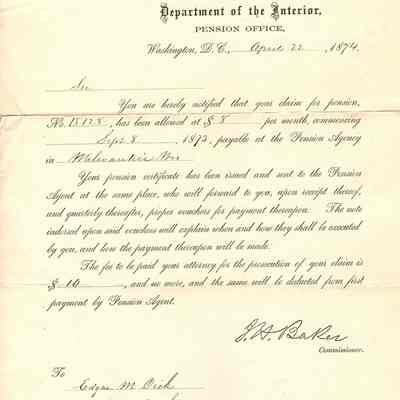 Department of the Interior,
PENSION OFFICE,
Washington, D.C., April 22, 1874.
Sir
You are hereby notified that your claim for pension,
No. 15128, has been allowed at $ 8 per month, commencing
Sept 8, 1873, payable at the Pension Agency
in Milwaukie Wis
Your pension certificate has been issued and sent to the Pension
Agent at the same place, who will forward to you, upon receipt thereof,
and quarterly thereafter, proper vouchers for payment thereupon. The note
indorsed upon said vouchers will explain when and how they shall be executed
by you, and how the payment thereupon will be made.
The fee to be paid your attorney for the prosecution of your claim is
$ 10, and no more, and the same will be deducted from first
payment by Pension Agent.
J. H. Baker
Commissioner.
To
Edgar M Dick